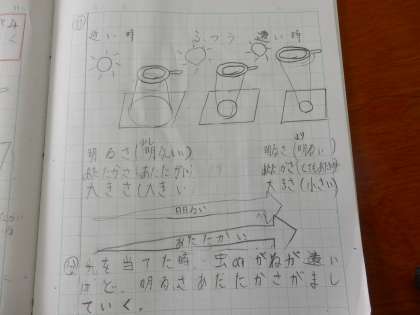 近い時 ふつう 遠い時
少し より
明るさ(明るい) 明るさ(明るい)
あたたかさ(あたたかい) あたたかさ(とてもあたたかい)
大きさ(大きい) 大きさ(小さい)
明るい
あたたかい
光を当てた時、虫めがねが遠い
ほど、明るさあたたかさがまし
ていく。